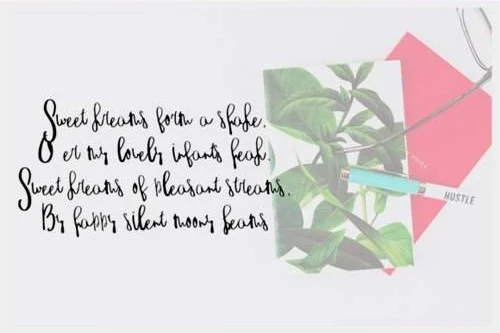 Sweet dreams form a shade.
O er my lovely infants head.
Sweet dreams of pleasant streams.
By happy silent moony beams
HUSTLE